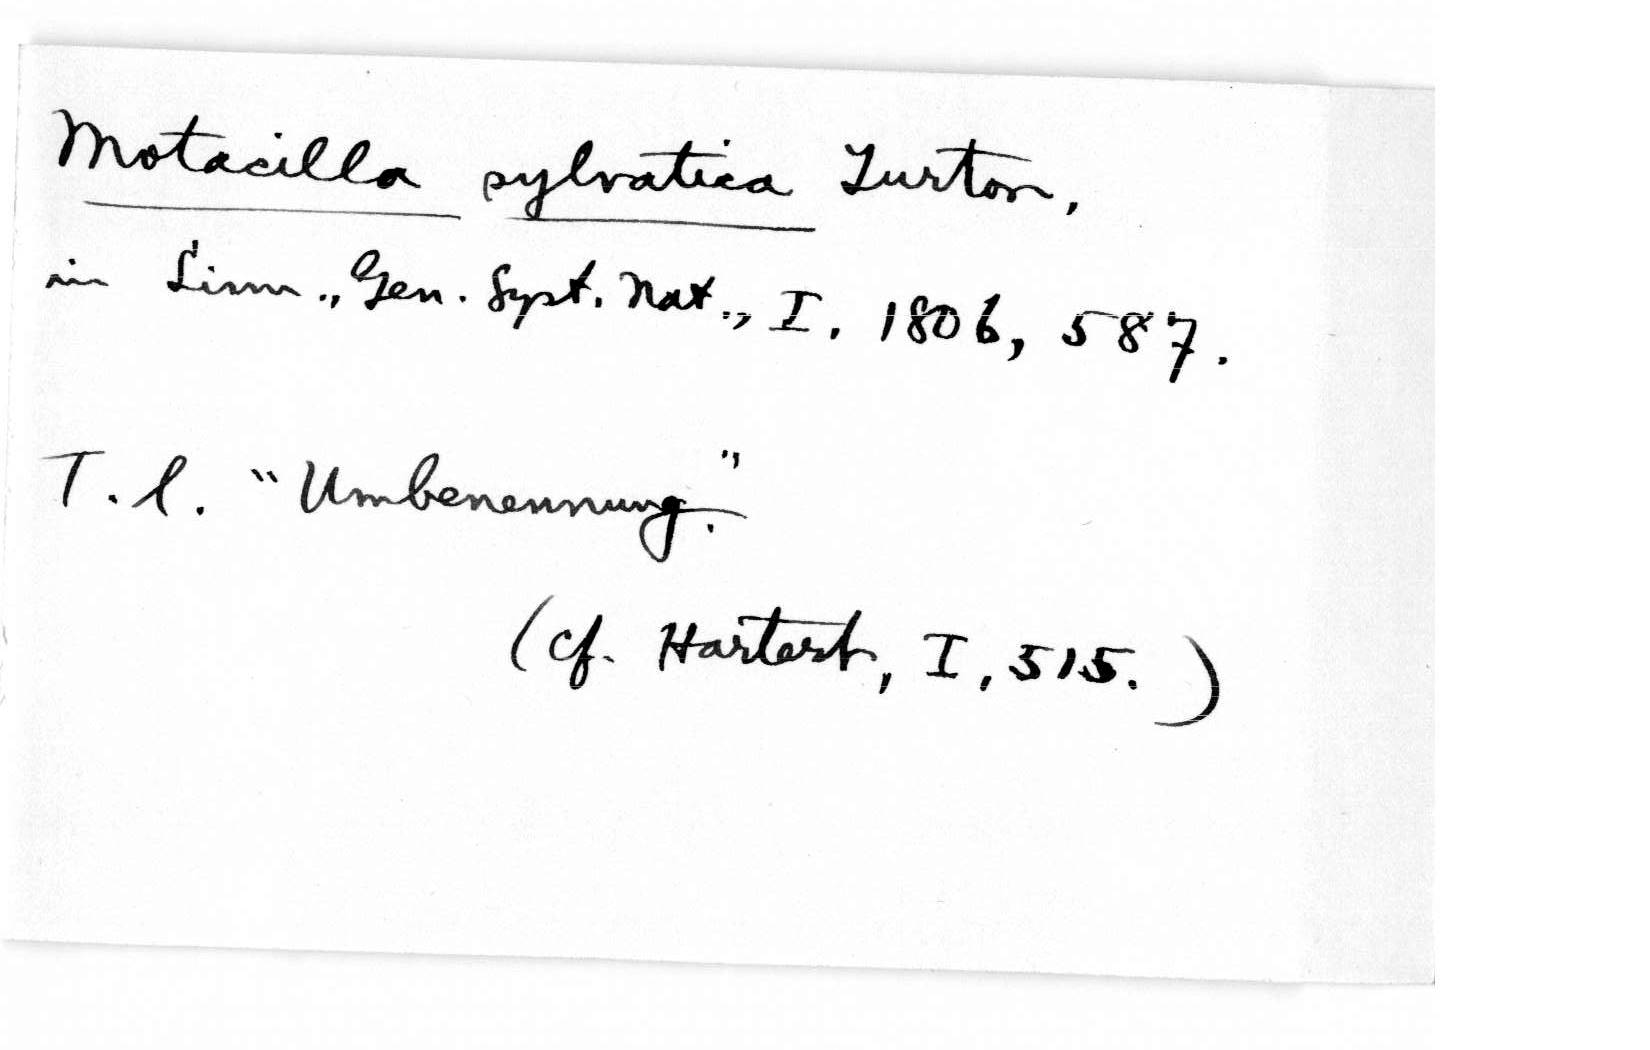 Motacilla sylvatica Turton,
in Linn., Gen. Syst. Nat., I, 1806, 587.
T.l. "Umbenennung."
(cf. Hartert, I, 515.)